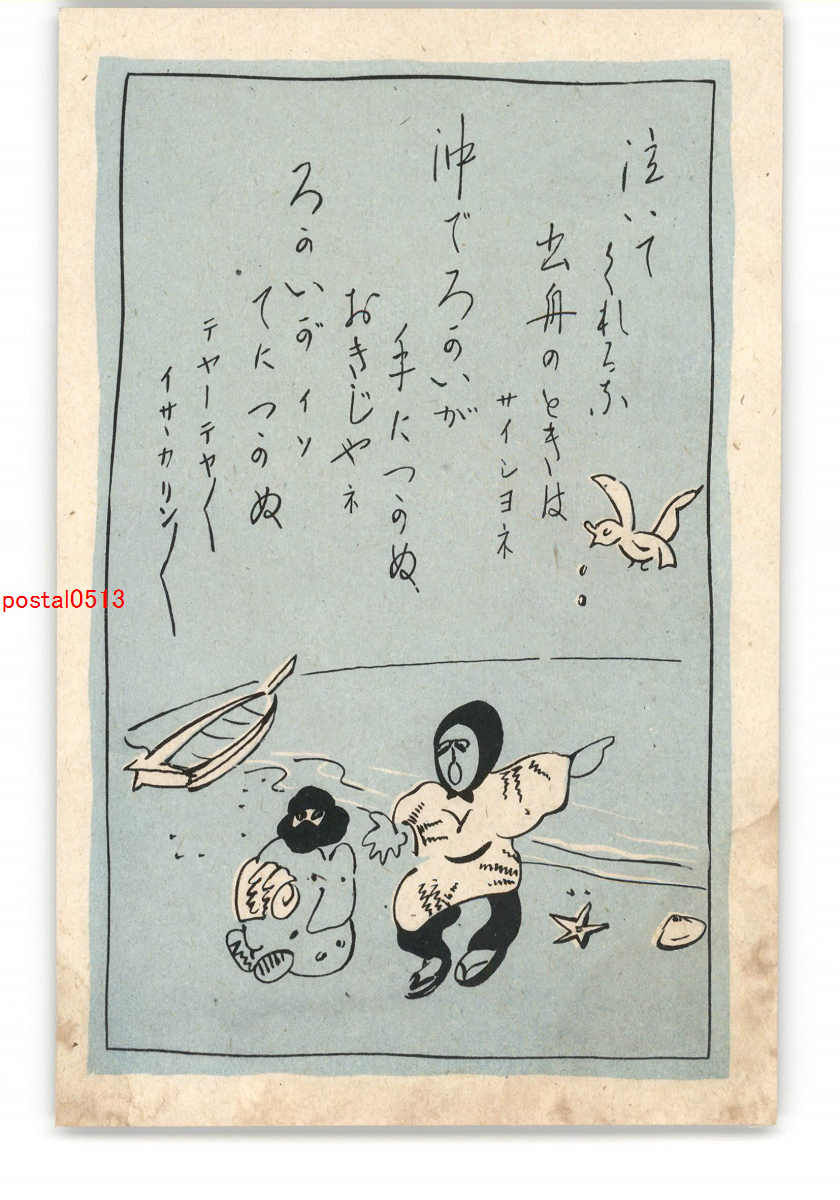 泣いて
くれるな
出舟のときは
サイショネ
沖でろかいが
手につかぬ、
おきじやネ
ろかいがイソ
てにつかぬ
テヤーテヤ〱
イサヽカリン〱
postal0513